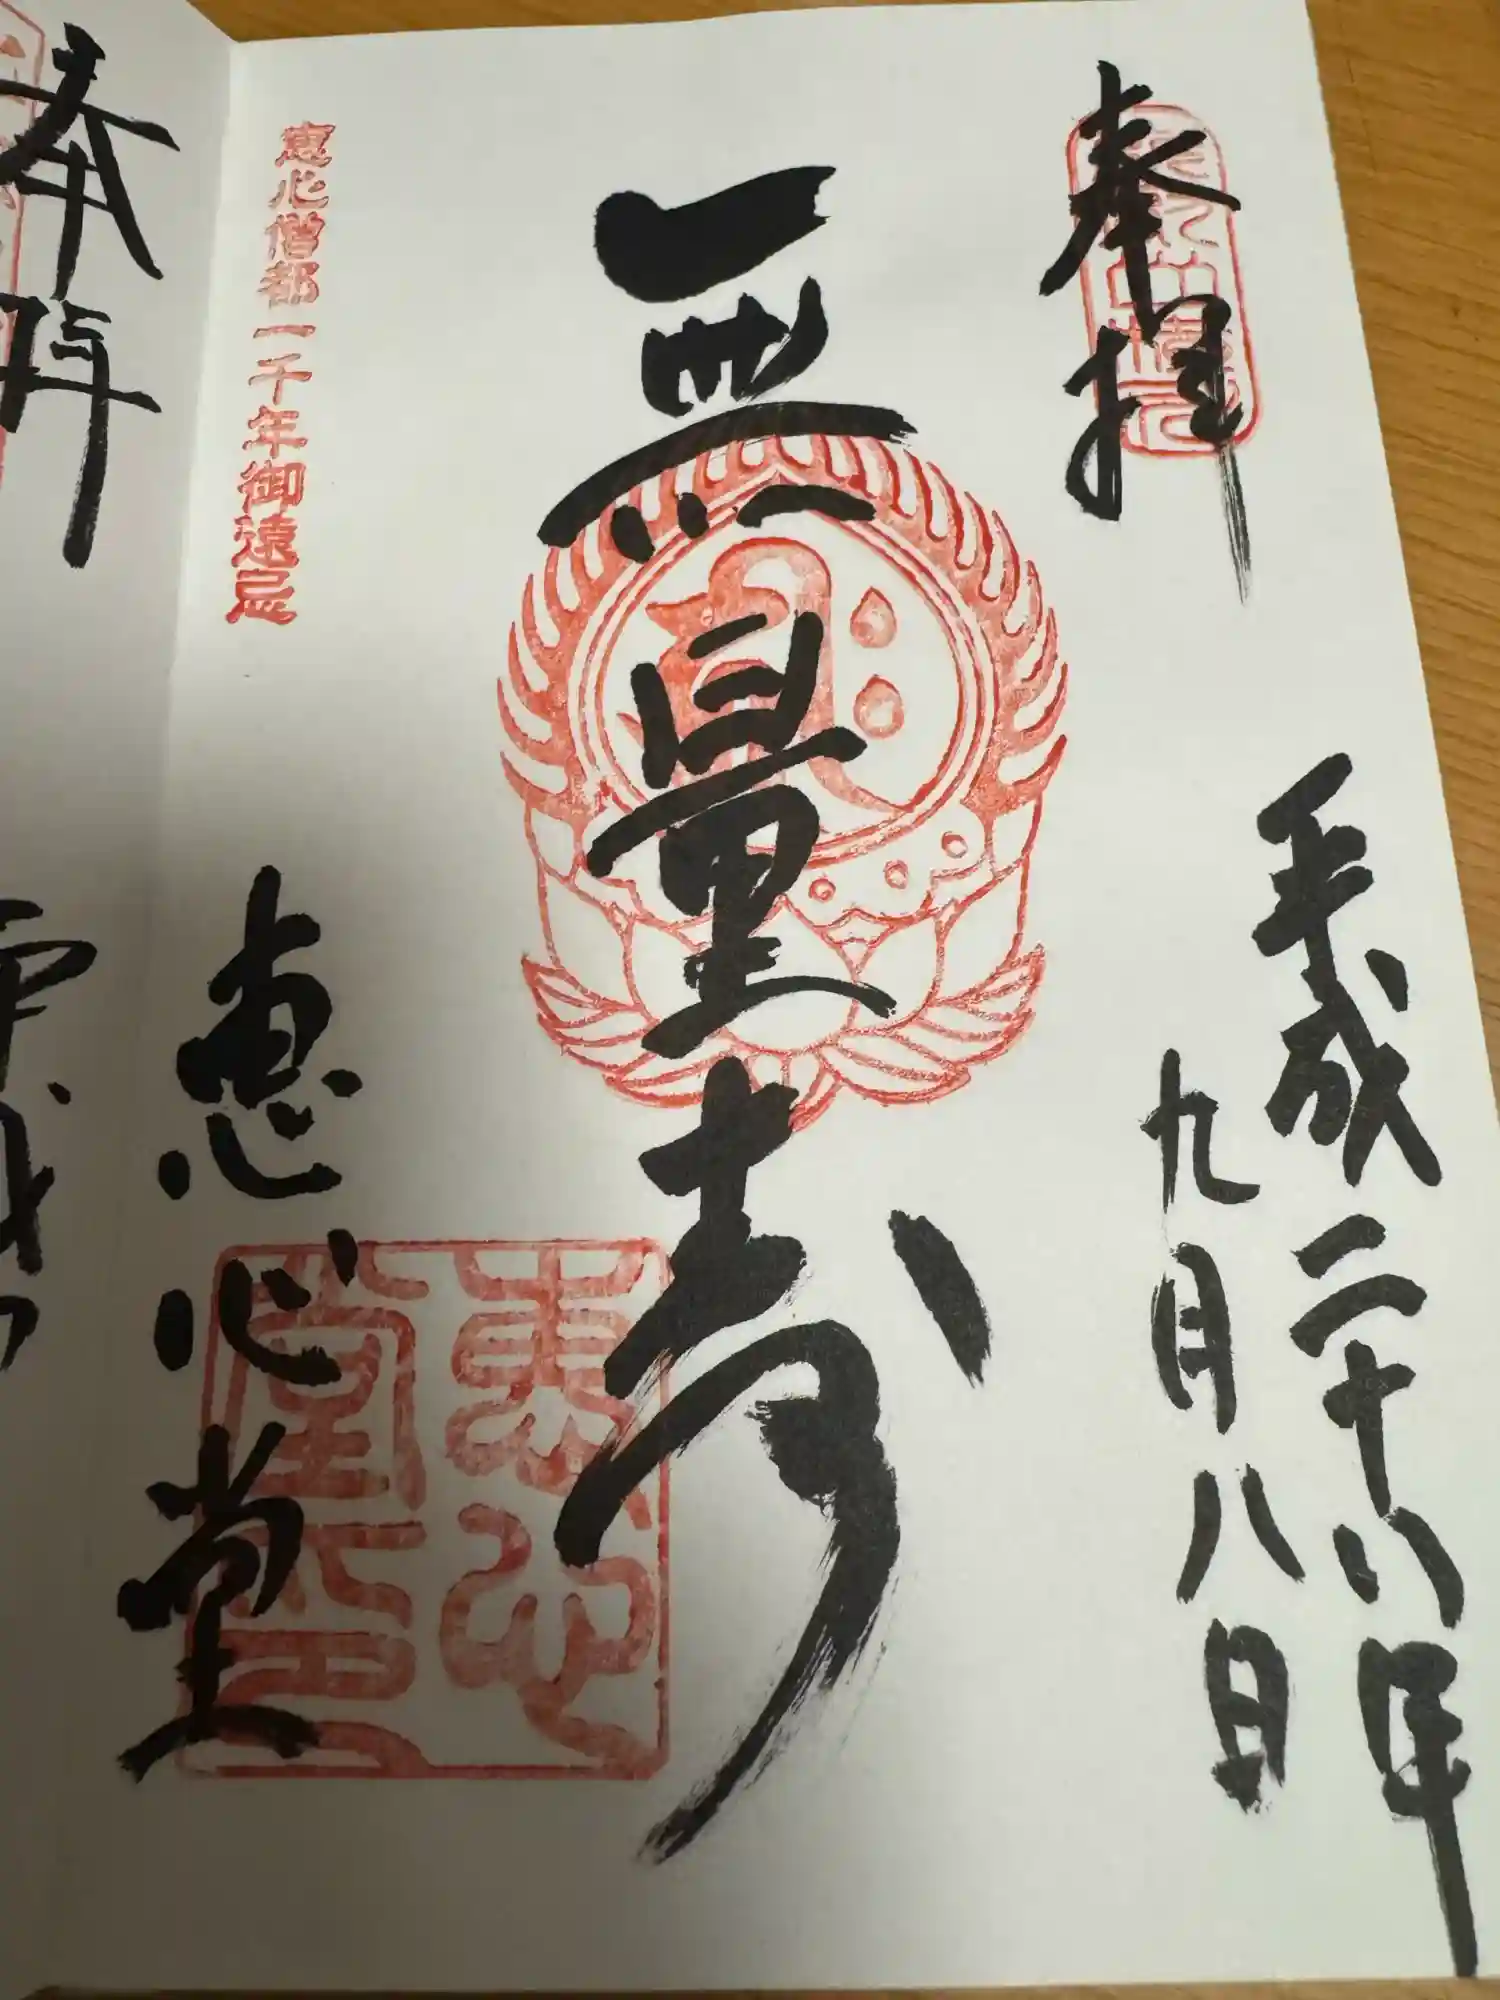 奉拝
平成二十八年
九月八日
無量寿
恵心堂
恵心僧都一千年御遠忌
恵心
堂印
奉拝